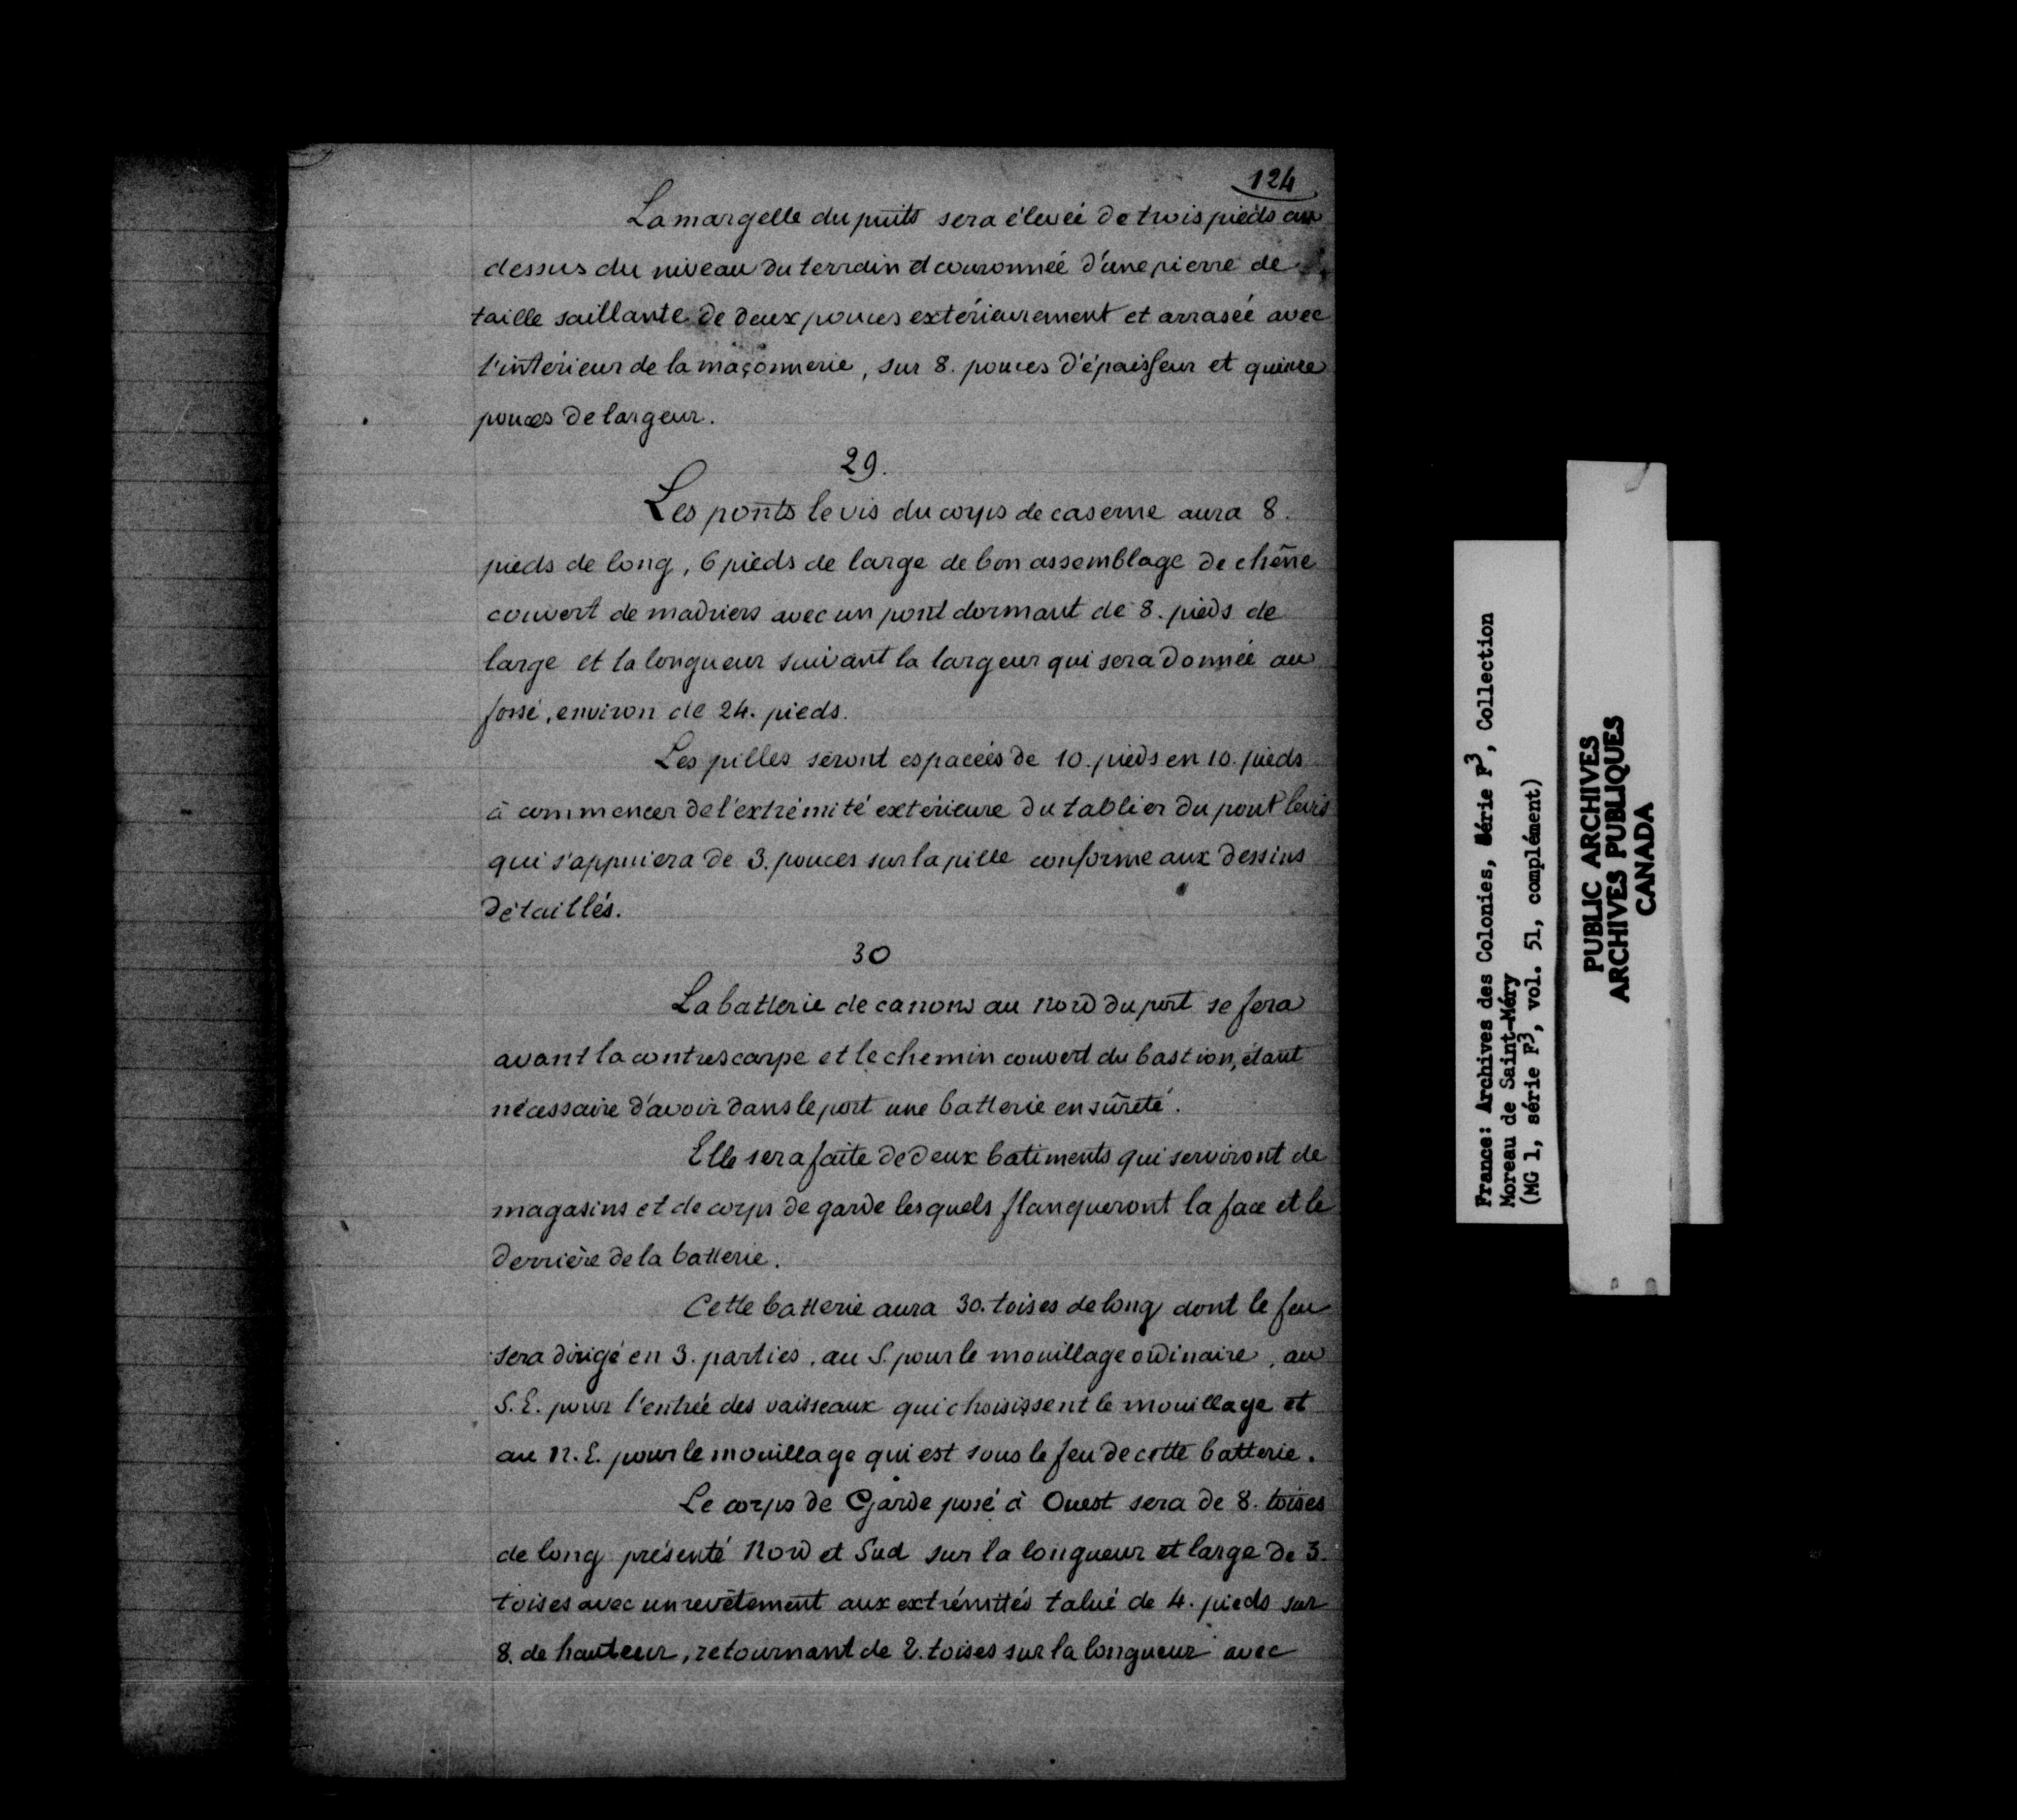 124
La margelle du puits sera élevée de trois pieds au
dessus du niveau du terrain et couronnée d'une pierre de
taille saillante de deux pouces extérieurement et arrasée avec
l'intérieur de la maçonnerie, sur 8. pouces d'épaisseur et quinze
pouces de largeur.
29.
Les ponts levis du corps de caserne aura 8.
pieds de long, 6 pieds de large de bon assemblage de chêne
couvert de madriers avec un pont dormant de 8. pieds de
large et la longueur suivant la largeur qui sera donnée au
fossé, environ de 24. pieds.
Les pilles seront espacées de 10. pieds en 10. pieds
à commencer de l'extrémité extérieure du tablier du pont levis
qui s'appuiera de 3. pouces sur la pille conforme aux dessins
détaillés.
30
La batterie de canons au nord du port se fera
avant la contrescarpe et le chemin couvert du bastion, étant
nécessaire d'avoir dans le port une batterie en sûreté.
Elle sera faite de deux batiments qui serviront de
magasins et de corps de garde lesquels flanqueront la face et le
derrière de la batterie.
Cette batterie aura 30. toises de long dont le feu
sera dirigé en 3. parties, au S. pour le mouillage ordinaire, au
S. E. pour l'entrée des vaisseaux qui choisissent le mouillage et
au N. E. pour le mouillage qui est sous le feu de cette batterie.
Le corps de Garde posé à Ouest sera de 8. toises
de long présenté Nord et Sud sur la longueur et large de 3.
toises avec un revêtement aux extrémités talué de 4. pieds sur
8. de hauteur, retournant de 2. toises sur la longueur avec
France: Archives des Colonies, Série F3, Collection
Moreau de Saint-Méry
(MG 1, série F3, vol. 51, complément)
PUBLIC ARCHIVES
ARCHIVES PUBLIQUES
CANADA